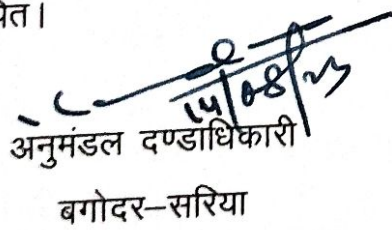 14/08/23
अनुमंडल दण्डाधिकारी
बगोदर–सरिया